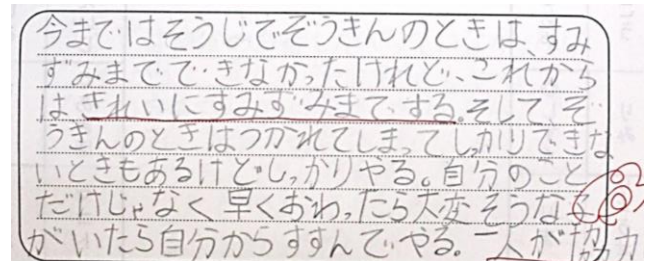 今まではそうじでぞうきんのときは、すみ
ずみまでできなかったけれど、これから
は、きれいにすみずみまでする。そして、ぞ
うきんのときはつかれてしまってしっかりできな
いときもあるけどしっかりやる。自分のこと
だけじゃなく早くおわったら大変そうなく
がいたら自分からすすんでやる。一人が協力